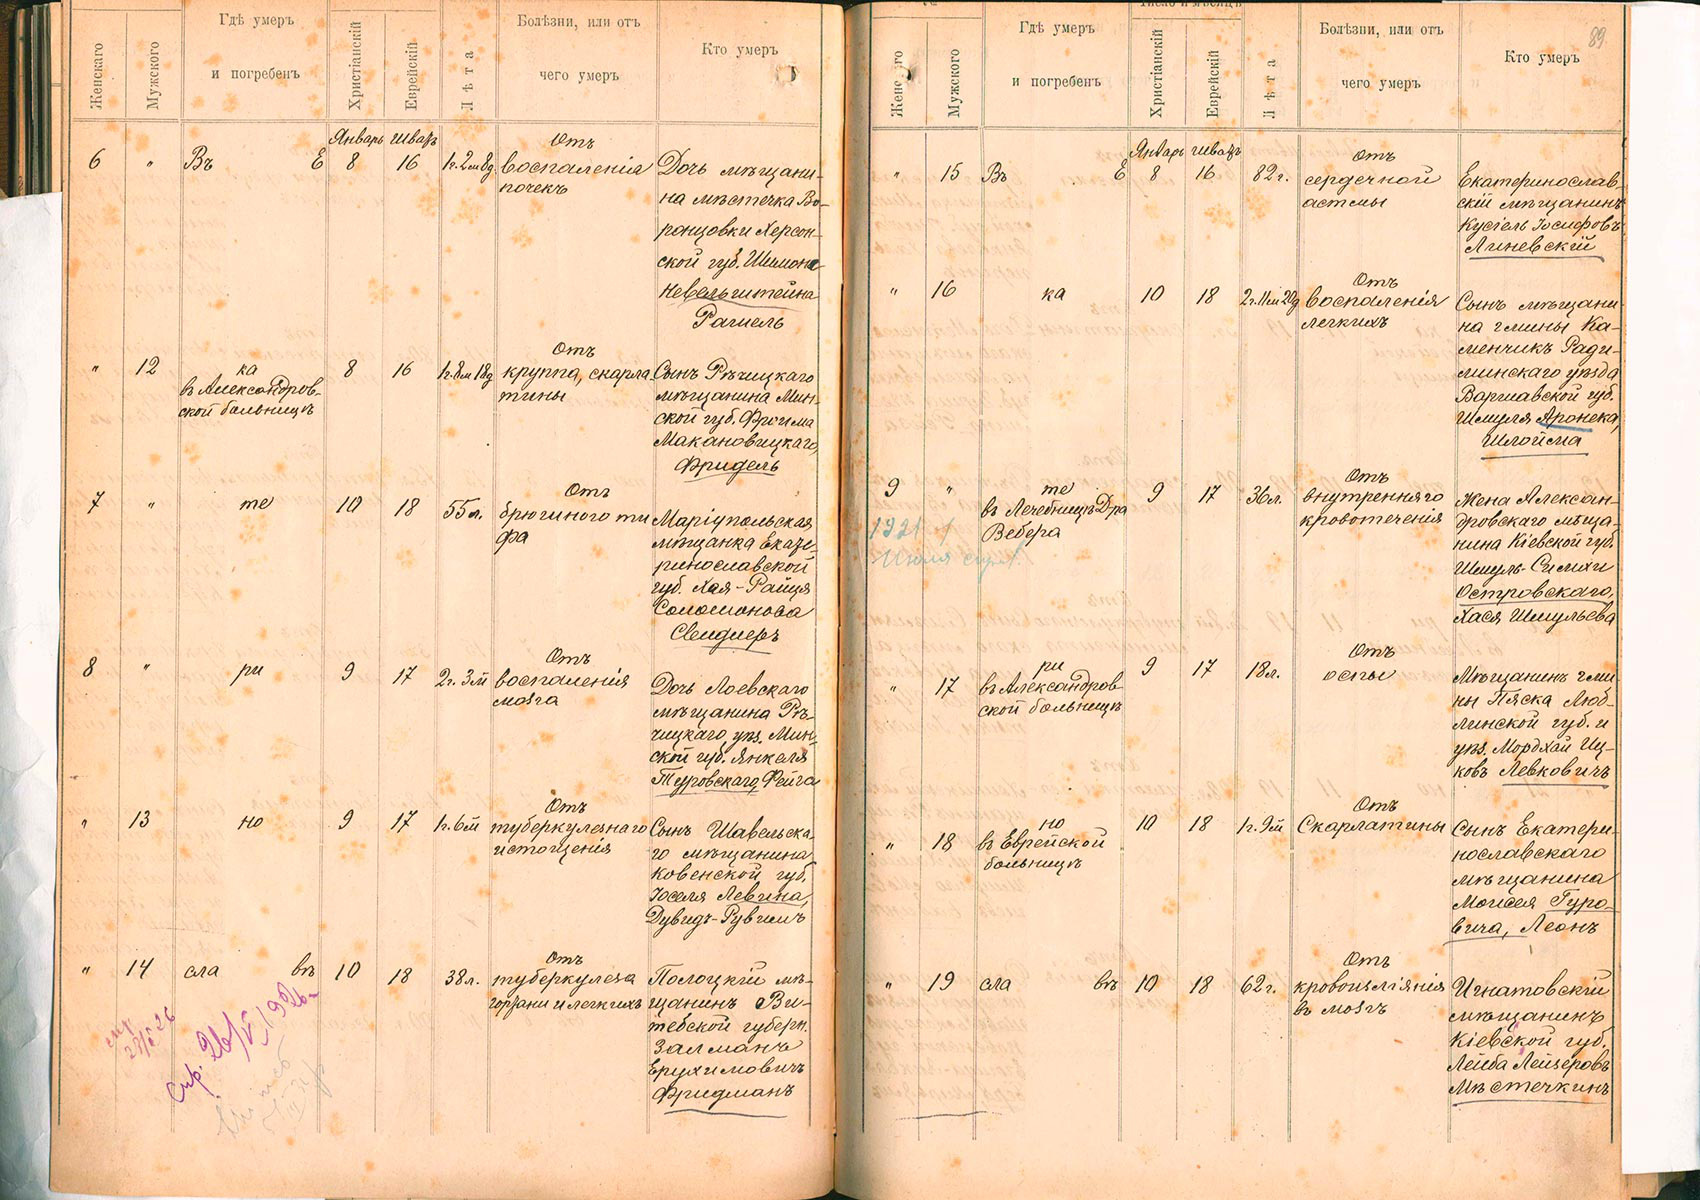 Женскаго
Мужского
Гдѣ умеръ
и погребенъ
Христіанскій
Еврейскій
Лѣта
Болѣзни, или отъ
чего умеръ
Кто умеръ
Январь Шватъ
6 " Въ Е 8 16 1г.2м8д.
Отъ
воспаленія
почекъ
Дочь мѣщани-
на мѣстечка Во-
ронцовки Херсон-
ской губ. Шимона
Невельштейна
Рашель
" 12 ка
въ Александров-
ской больницѣ
8 16 1г.8м18д
Отъ
круппа, скарла-
тины
Сынъ Рѣчицкаго
мѣщанина Мин-
ской губ. Фроима
Макановицкаго,
Фридель
7 " те 10 18 55л.
Отъ
брюшного ти
фа
Маріупольская
мѣщанка Екате-
ринославской
губ. Хая-Райця
Соломонова
Свидлеръ
8 " ри 9 17 2г.3м
Отъ
воспаленія
мозга
Дочь Лоевскаго
мѣщанина Рѣ-
чицкаго уѣз. Мин-
ской губ. Янкеля
Туровскаго, Фейга
" 13 но 9 17 1г.6м
Отъ
туберкулезнаго
истощенія
Сынъ Шавельска-
го мѣщанина
Ковенской губ.
Іоселя Левина,
Дувидъ-Рувимъ
" 14 сла въ 10 18 38л.
Отъ
туберкулеза
гортани и легкихъ
Полоцкій мѣ-
щанинъ Ви-
тебской губерн.
Залманъ
Ерухимовичъ
Фридманъ
спр. 26/V 1926
89.
Женскаго
Мужского
Гдѣ умеръ
и погребенъ
Число и мѣсяцъ
Христіанскій
Еврейскій
Лѣта
Болѣзни, или отъ
чего умеръ
Кто умеръ
Январь Шватъ
" 15 Въ Е 8 16 82г.
Отъ
сердечной
астмы
Екатеринослав-
скій мѣщанинъ
Кусіель Іосифовъ
Линевскій
" 16 ка 10 18 2г.11м20д
Отъ
воспаленія
легкихъ
Сынъ мѣщани-
на гмины Ка-
менчикъ Ради-
минскаго уѣзда
Варшавской губ.
Шмуля Аронека,
Шлойма
9 " те
въ Лечебницѣ Д-ра
Вебера
9 17 36л.
Отъ
внутренняго
кровотеченія
Жена Алексан-
дровскаго мѣща-
нина Кіевской губ.
Шмуль-Симхи
Островскаго,
Хася Шмульева
1921
" 17 ри
въ Александров
ской больницѣ
9 17 18л.
Отъ
оспы
Мѣщанинъ гми
ны Пяска Люб-
линской губ. и
уѣз. Мордхай Иц-
ковъ Левковичъ
" 18 но
въ Еврейской
больницѣ
10 18 1г.9м
Отъ
Скарлатины
Сынъ Екатери-
нославскаго
мѣщанина
Моисея Гуро-
вича, Леонъ
" 19 сла въ 10 18 62г.
Отъ
кровоизліянія
въ мозгъ
Игнатовскій
мѣщанинъ
Кіевской губ.
Лейба Лейзеровъ
Мѣстечкинъ